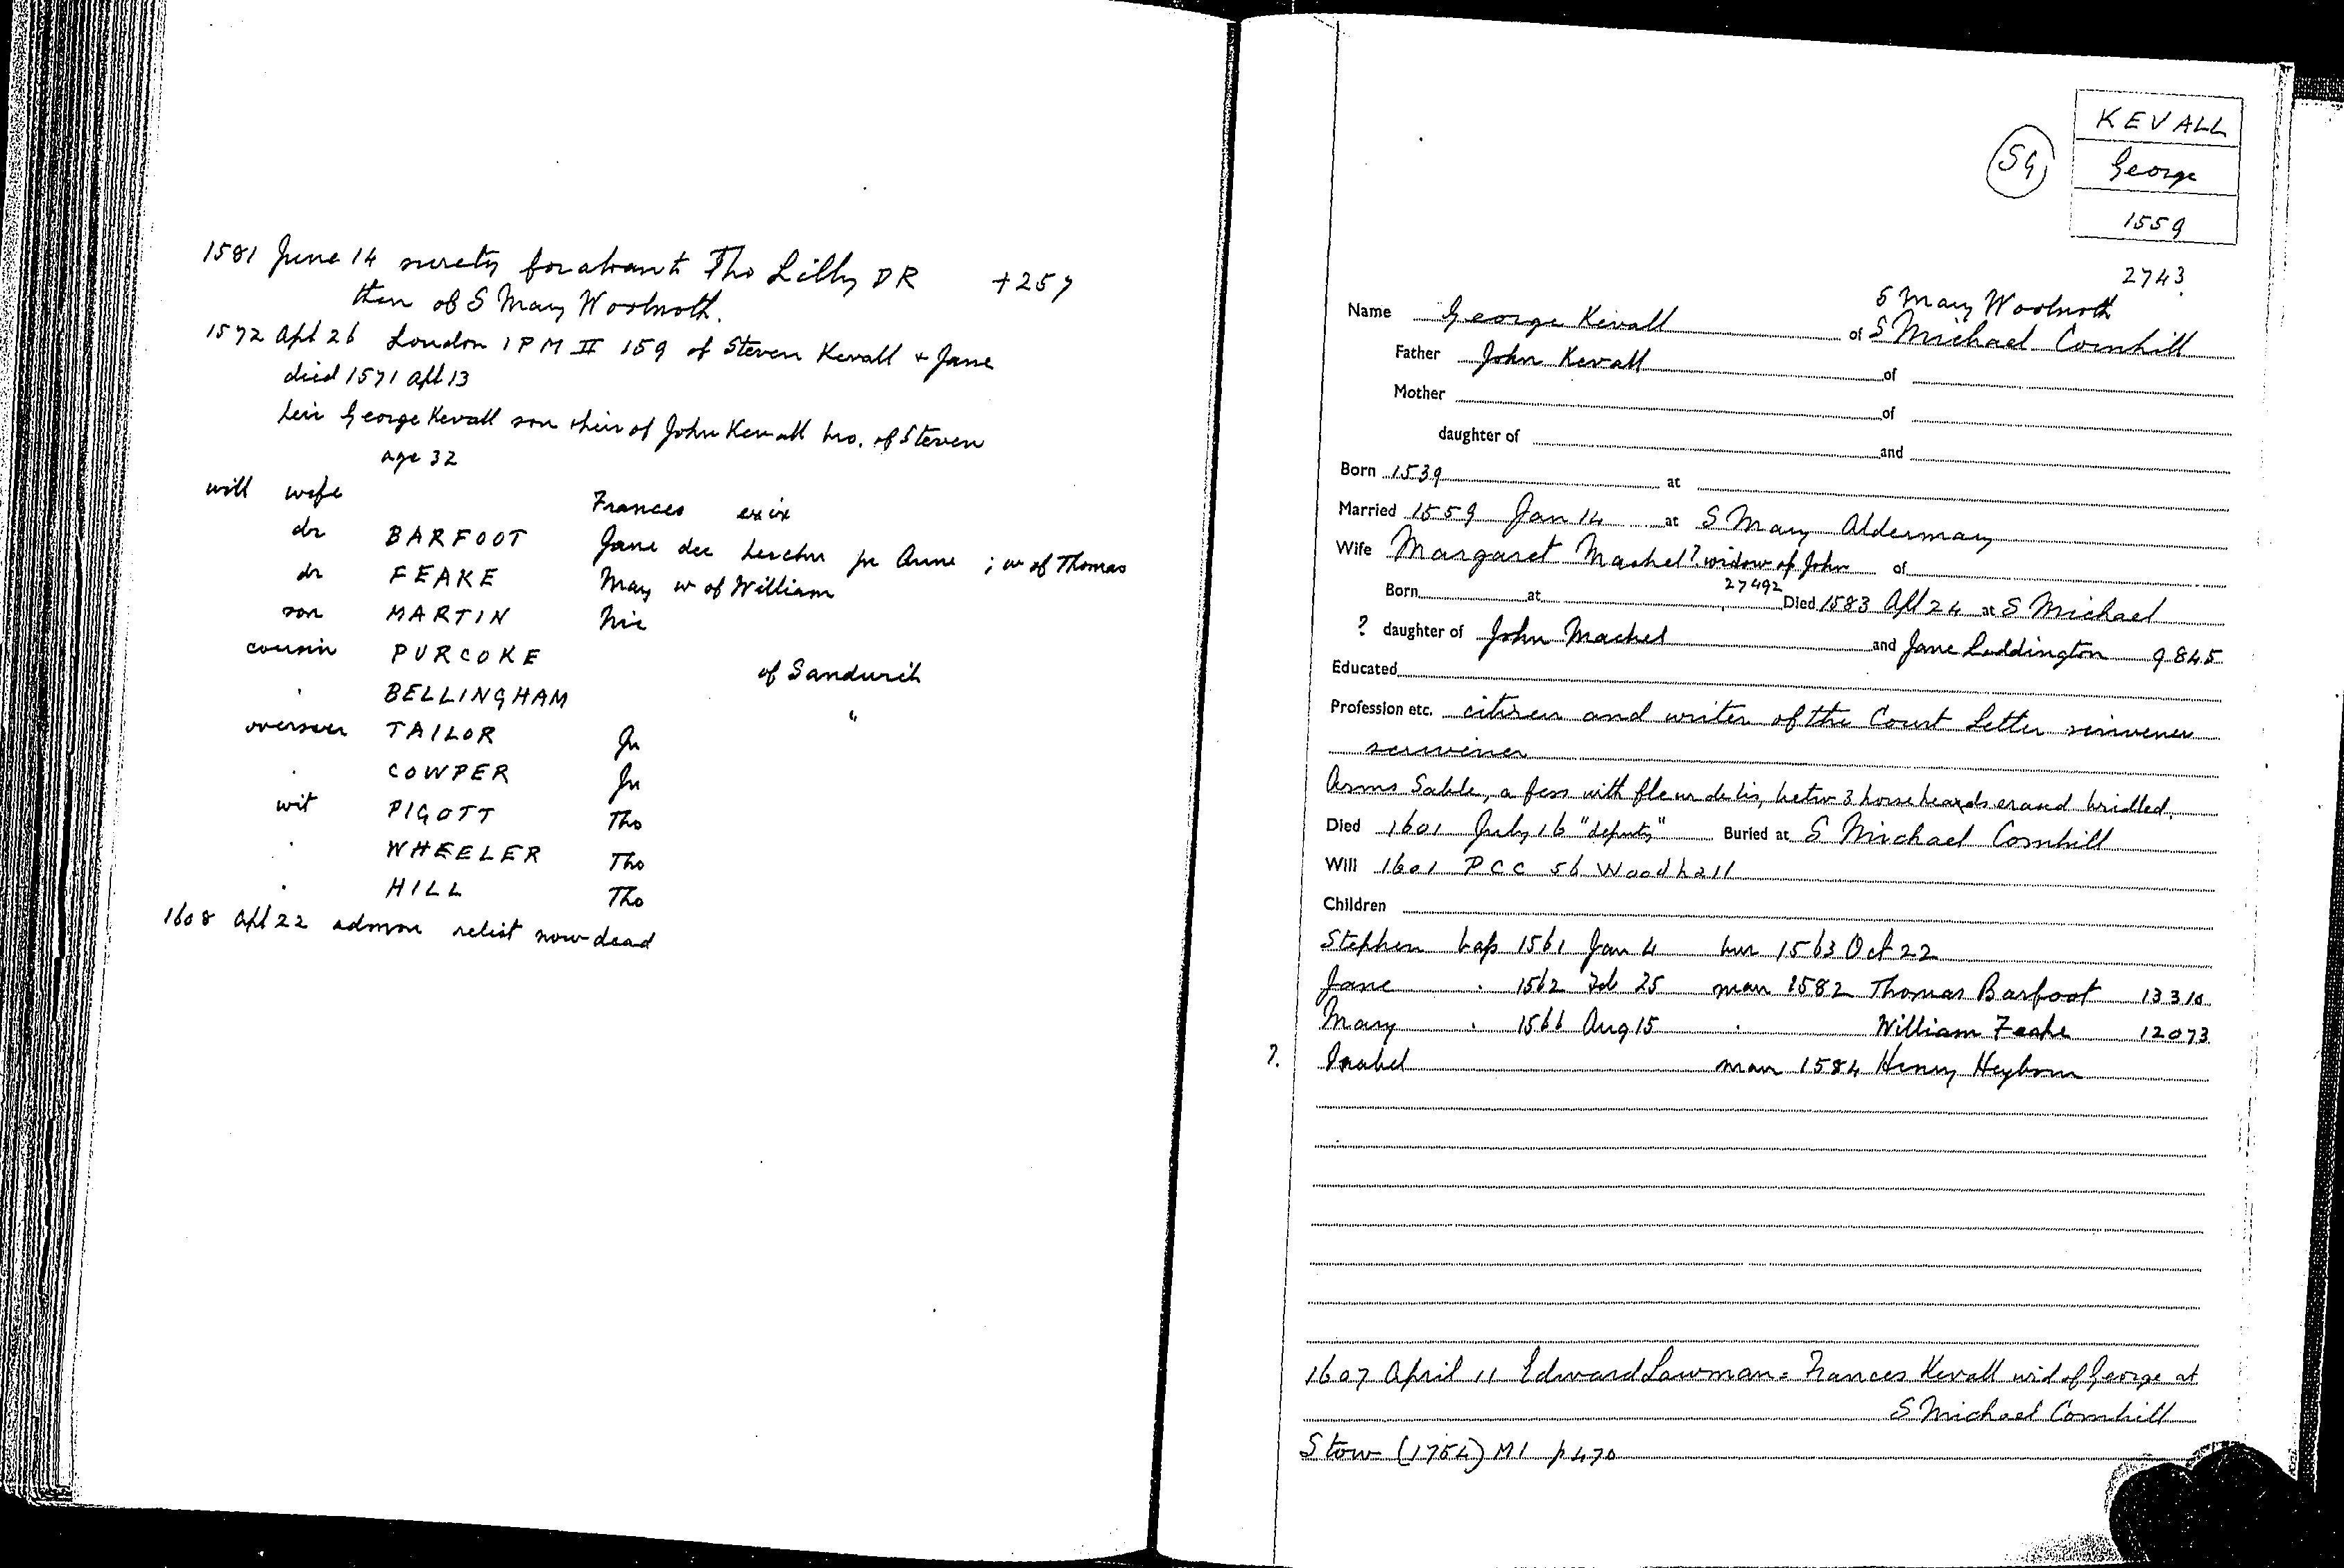 1581 June 14 surety for Tho Lilly DR +257
then of S Mary Woolnoth.
1572 Apl 26 London IPM II 159 of Steven Kevall + Jane
died 1571 Apl 13
heir George Kevall son + heir of John Kevall bro. of Steven
age 32
will wife Frances exix
dr BARFOOT Jane dec her chn Jn Anne ; w of Thomas
dr FEAKE Mary w of William
son MARTIN Nic
cousin PURCOKE of Sandwich
. BELLINGHAM "
overseer TAILOR Jn
. COWPER Jn
wit PIGOTT Tho
. WHEELER Tho
. HILL Tho
1608 Apl 22 admon relict now dead
KEVALL
SG George
1559
2743
S Mary Woolnoth
Name George Kevall of S Michael Cornhill
Father John Kevall of
Mother of
daughter of and
Born 1539 at
Married 1559 Jan 14 at S Mary Aldermary
Wife Margaret Machel ? widow of John of
27492
Born at Died 1583 Apl 24 at S Michael
? daughter of John Machel and Jane Luddington 9845
Educated
Profession etc. citizen and writer of the Court Letter scrivener
scrivener
Arms Sable, a fess with fleur de lis, betw 3 horse heads erased bridled.
Died 1601 July 16 "deputy" Buried at S Michael Cornhill
Will 1601 PCC 56 Woodhall
Children
Stephen bap 1561 Jan 4 bur 1563 Oct 22
Jane . 1562 Feb 25 marr 1582 Thomas Barfoot 13310
Mary . 1566 Aug 15 . William Feake 12073
? Isabel marr 1584 Henry Heyborn
1607 April 11 Edward Lawman = Frances Kevall wid of George at
S Michael Cornhill
Stow (1754) MI p 470